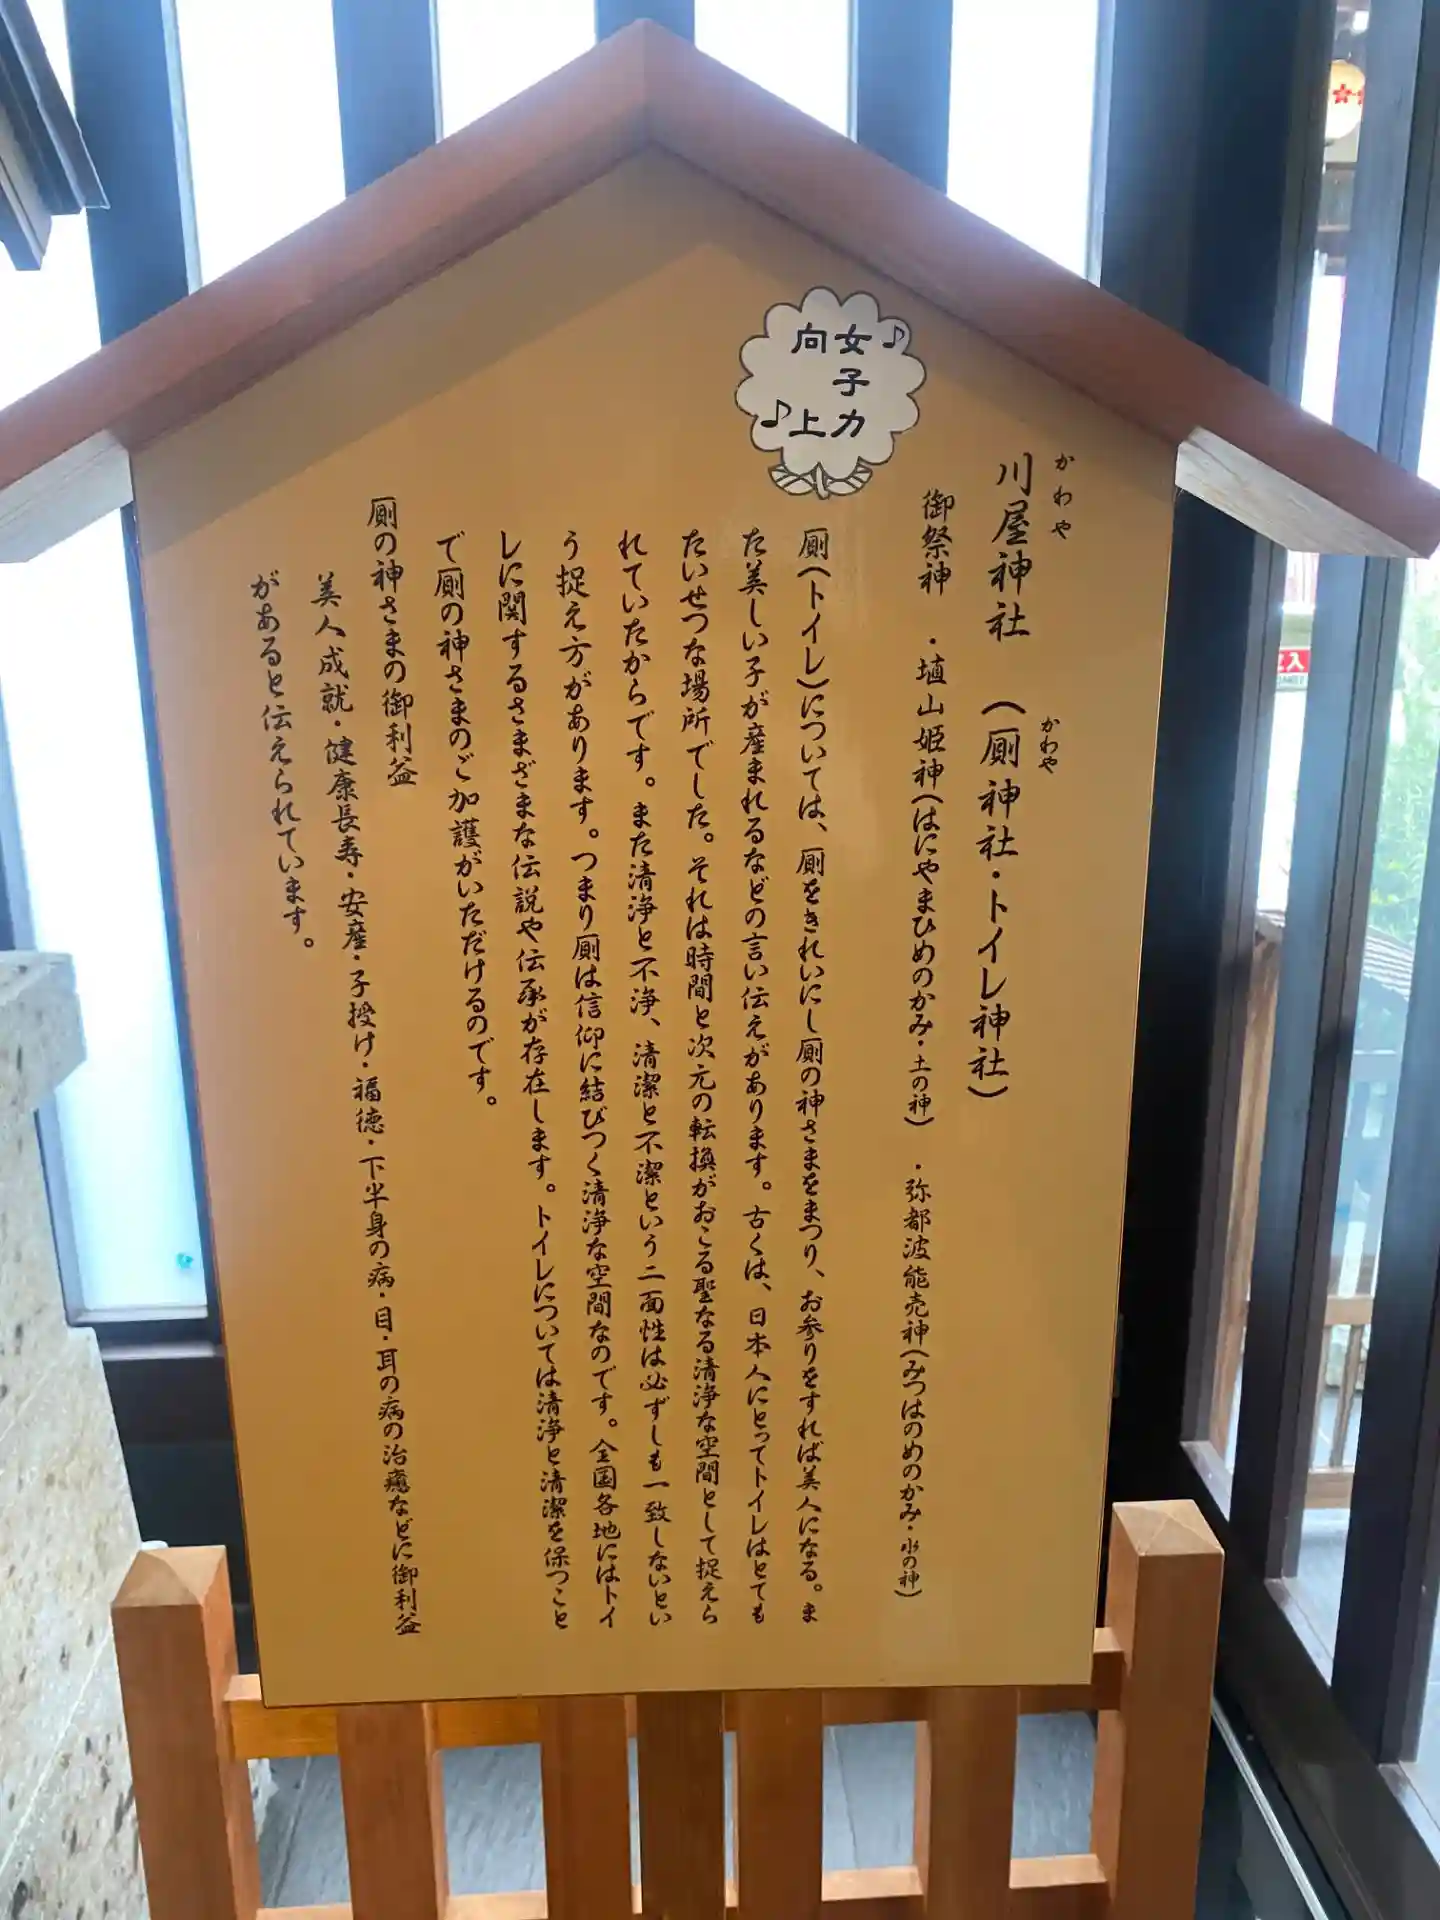 かわや
川屋神社
かわや
（厠神社・トイレ神社）
女子力
向上
御祭神 ・埴山姫神（はにやまひめのかみ・土の神） ・弥都波能売神（みつはのめのかみ・水の神）
厠（トイレ）については、厠をきれいにし厠の神さまをまつり、お参りをすれば美人になる。ま
た美しい子が産まれるなどの言い伝えがあります。古くは、日本人にとってトイレはとても
たいせつな場所でした。それは時間と次元の転換がおこる聖なる清浄な空間として捉えら
れていたからです。また清浄と不浄、清潔と不潔という二面性は必ずしも一致しないとい
う捉え方があります。つまり厠は信仰に結びつく清浄な空間なのです。全国各地にはトイ
レに関するさまざまな伝説や伝承が存在します。トイレについては清浄と清潔を保つこと
で厠の神さまのご加護がいただけるのです。
厠の神さまの御利益
美人成就・健康長寿・安産・子授け・福徳・下半身の病・目・耳の病の治癒などに御利益
があると伝えられています。